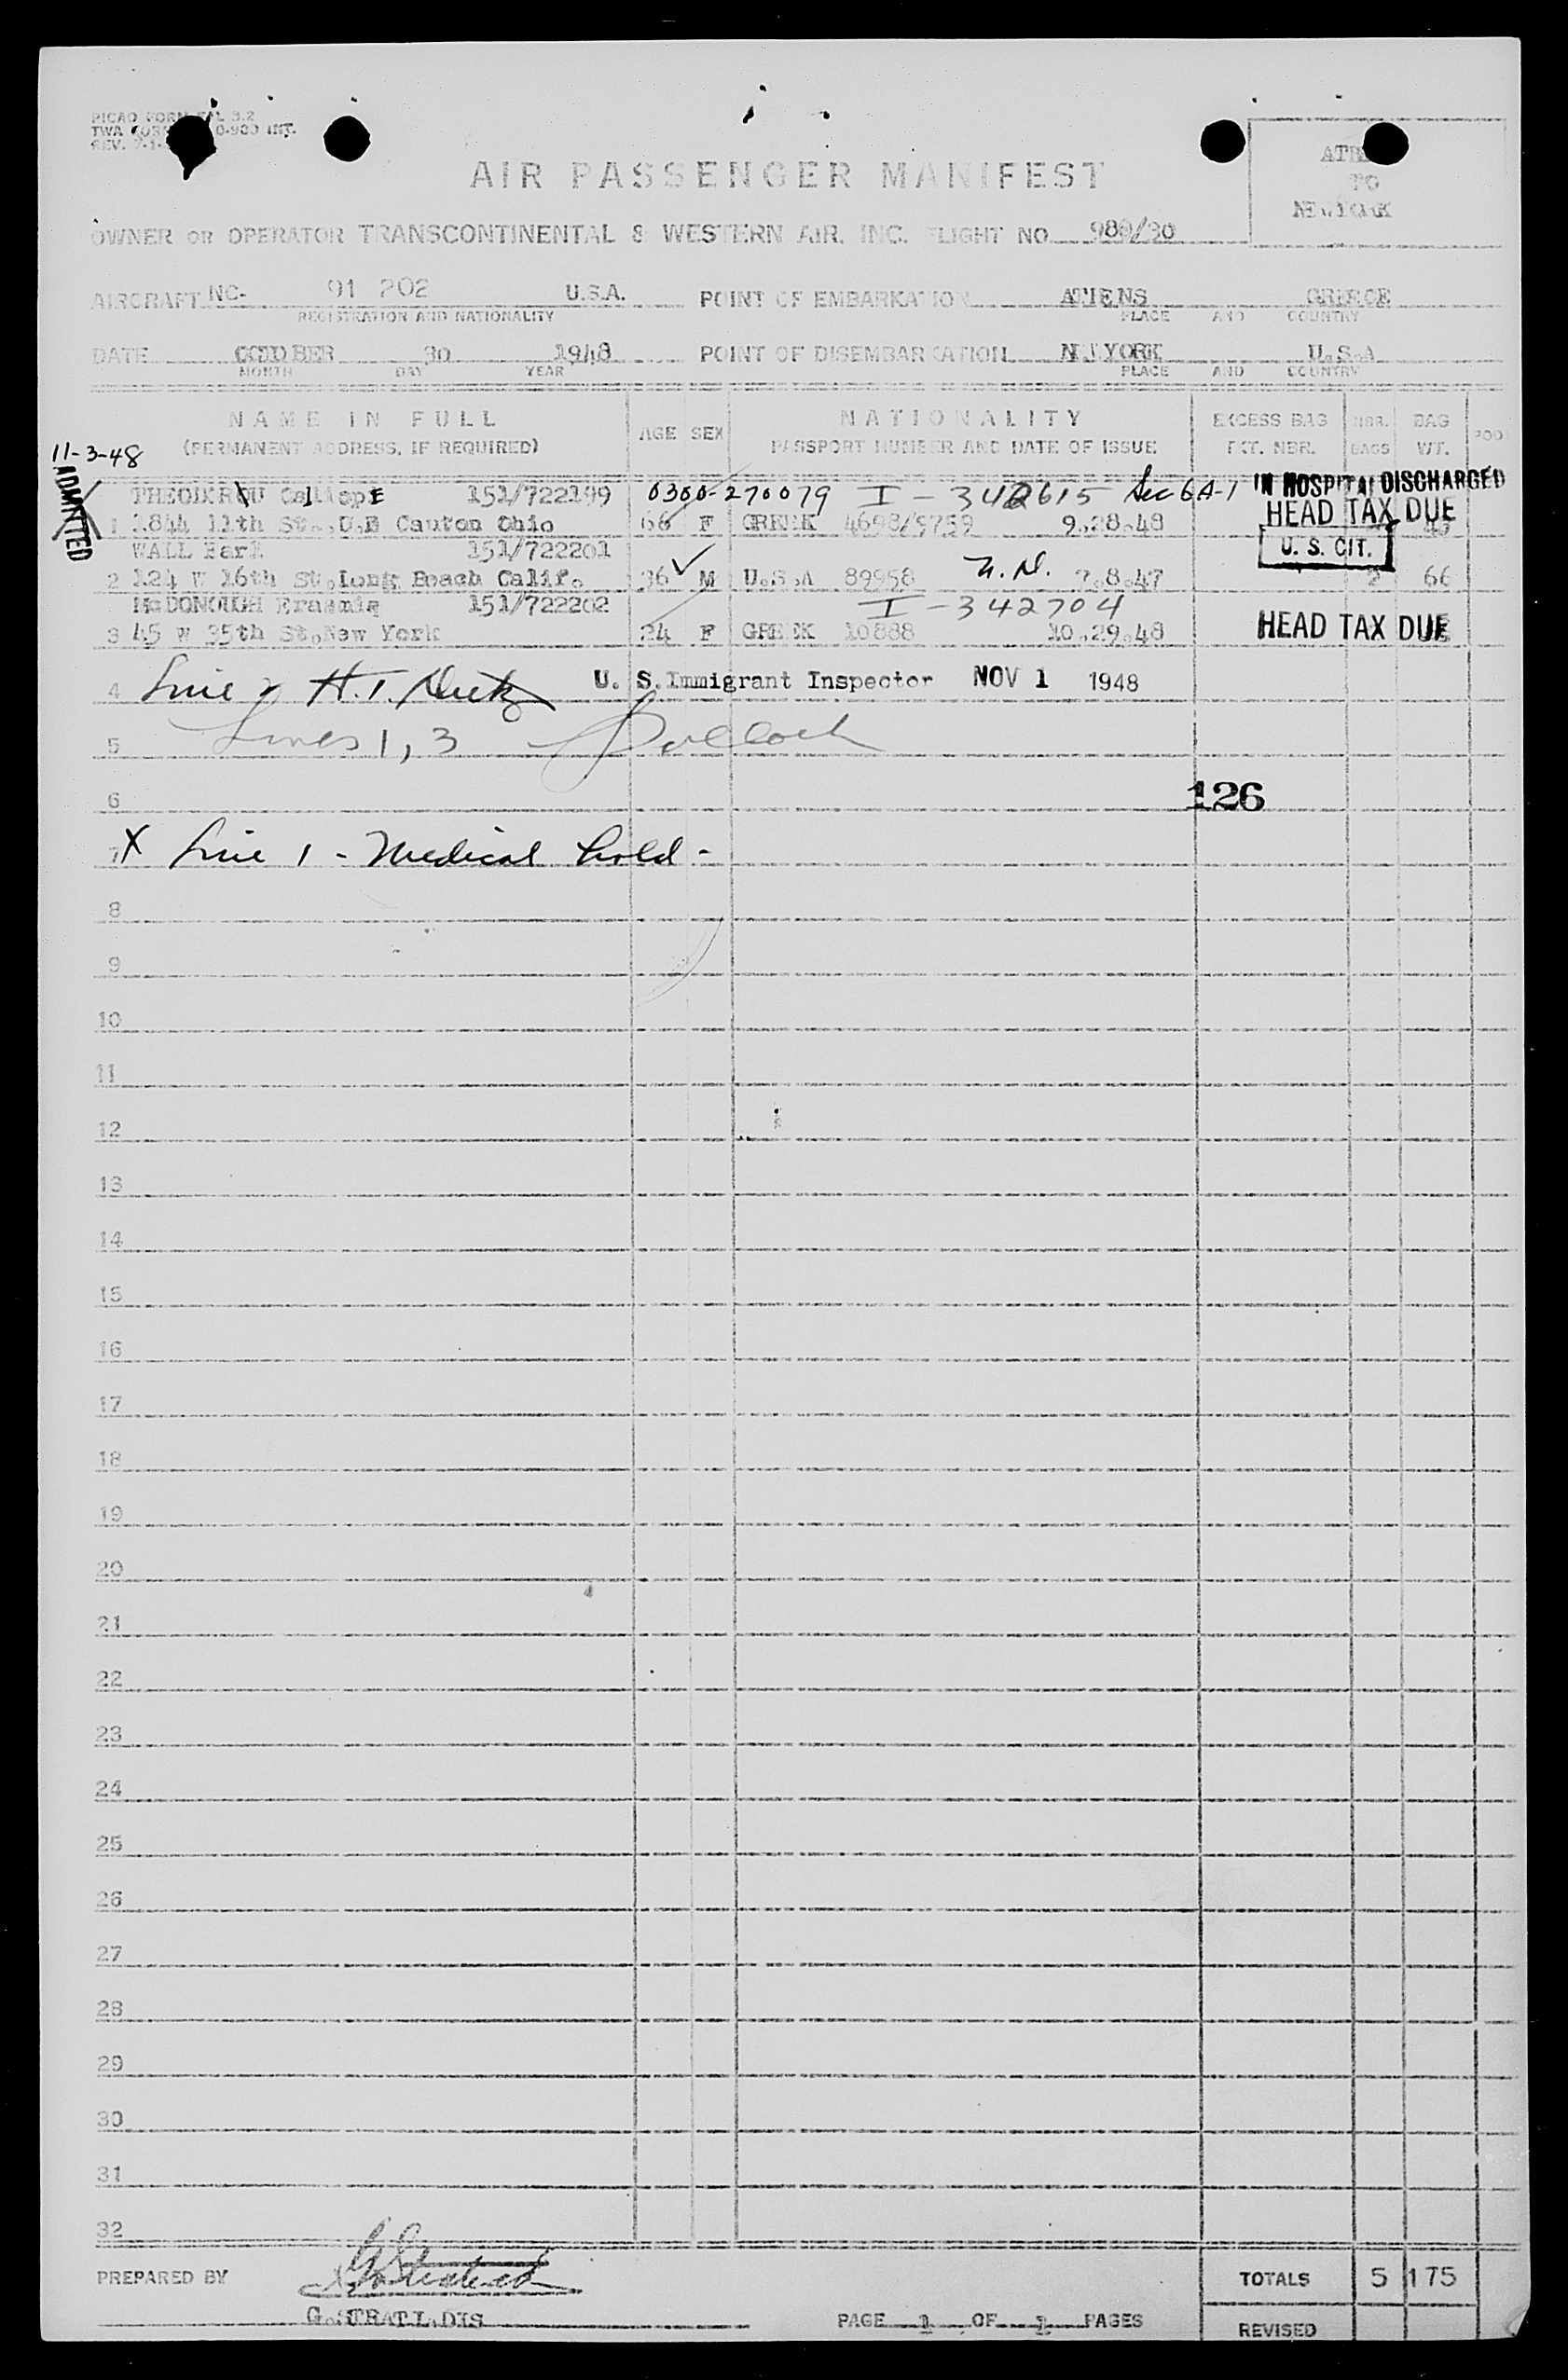 PICAO FORM FAL 3.2
TWA FORM 0-930 INT.
REV.
ATHE
TO
NEW YORK
AIR PASSENGER MANIFEST
OWNER OR OPERATOR TRANSCONTINENTAL & WESTERN AIR, INC. FLIGHT NO 980/30
AIRCRAFT NC- 91 202 U.S.A. POINT OF EMBARKATION ATHENS GREECE
REGISTRATION AND NATIONALITY PLACE AND COUNTRY
DATE OCTOBER 30 1948 POINT OF DISEMBARKATION NEW YORK U.S.A
MONTH DAY YEAR PLACE AND COUNTRY
NAME IN FULL AGE SEX NATIONALITY EXCESS BAG NBR. BAG
(PERMANENT ADDRESS, IF REQUIRED) PASSPORT NUMBER AND DATE OF ISSUE TKT. NBR. BAGS WT.
11-3-48
ADMITTED
THEODOROU CalliopE 151/722199 0300-270079 I-342615 Sec 6A-1 IN HOSPITAL DISCHARGED
HEAD TAX DUE
1 1844 11th St. Canton Ohio 66 F GREEK 4698/5759 9.28.48
WALL Earl 151/722201 U. S. CIT.
2 124 W 16th St.Long Beach Calif. 36 M U.S.A 89958 7.8.47 2 66
McDONOUGH Erasmia 151/722202 I-342704
3 45 W 35th St.New York 24 F GREEK 10888 10.29.48 HEAD TAX DUE
4 Line 2 H.T. U. S. Immigrant Inspector NOV 1 1948
5 Lines 1, 3 Pollock
6 126
7 X Line 1 - Medical hold -
8
9
10
11
12
13
14
15
16
17
18
19
20
21
22
23
24
25
26
27
28
29
30
31
32
PREPARED BY TOTALS 5 175
G.STRATI.DIS PAGE 1 OF 1 PAGES
REVISED